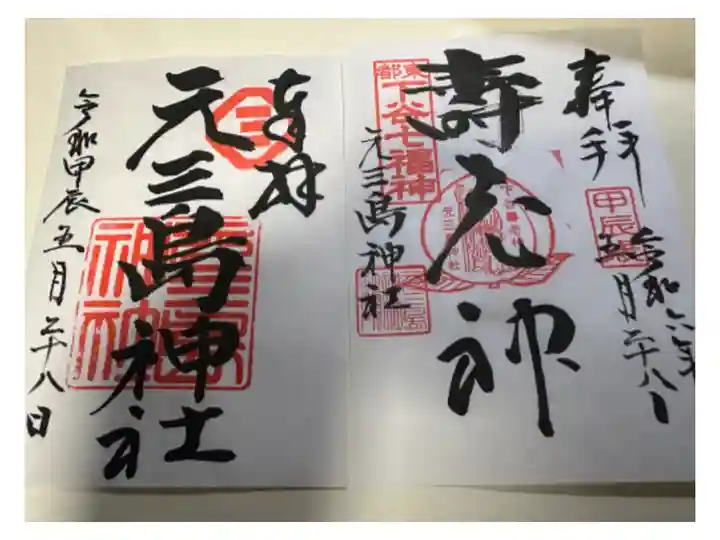 奉拝
壽老神
東都
下谷七福神
元三島神社
甲辰
令和六年
五月二十八日
奉拝
三
元三島神社
令和甲辰五月二十八日